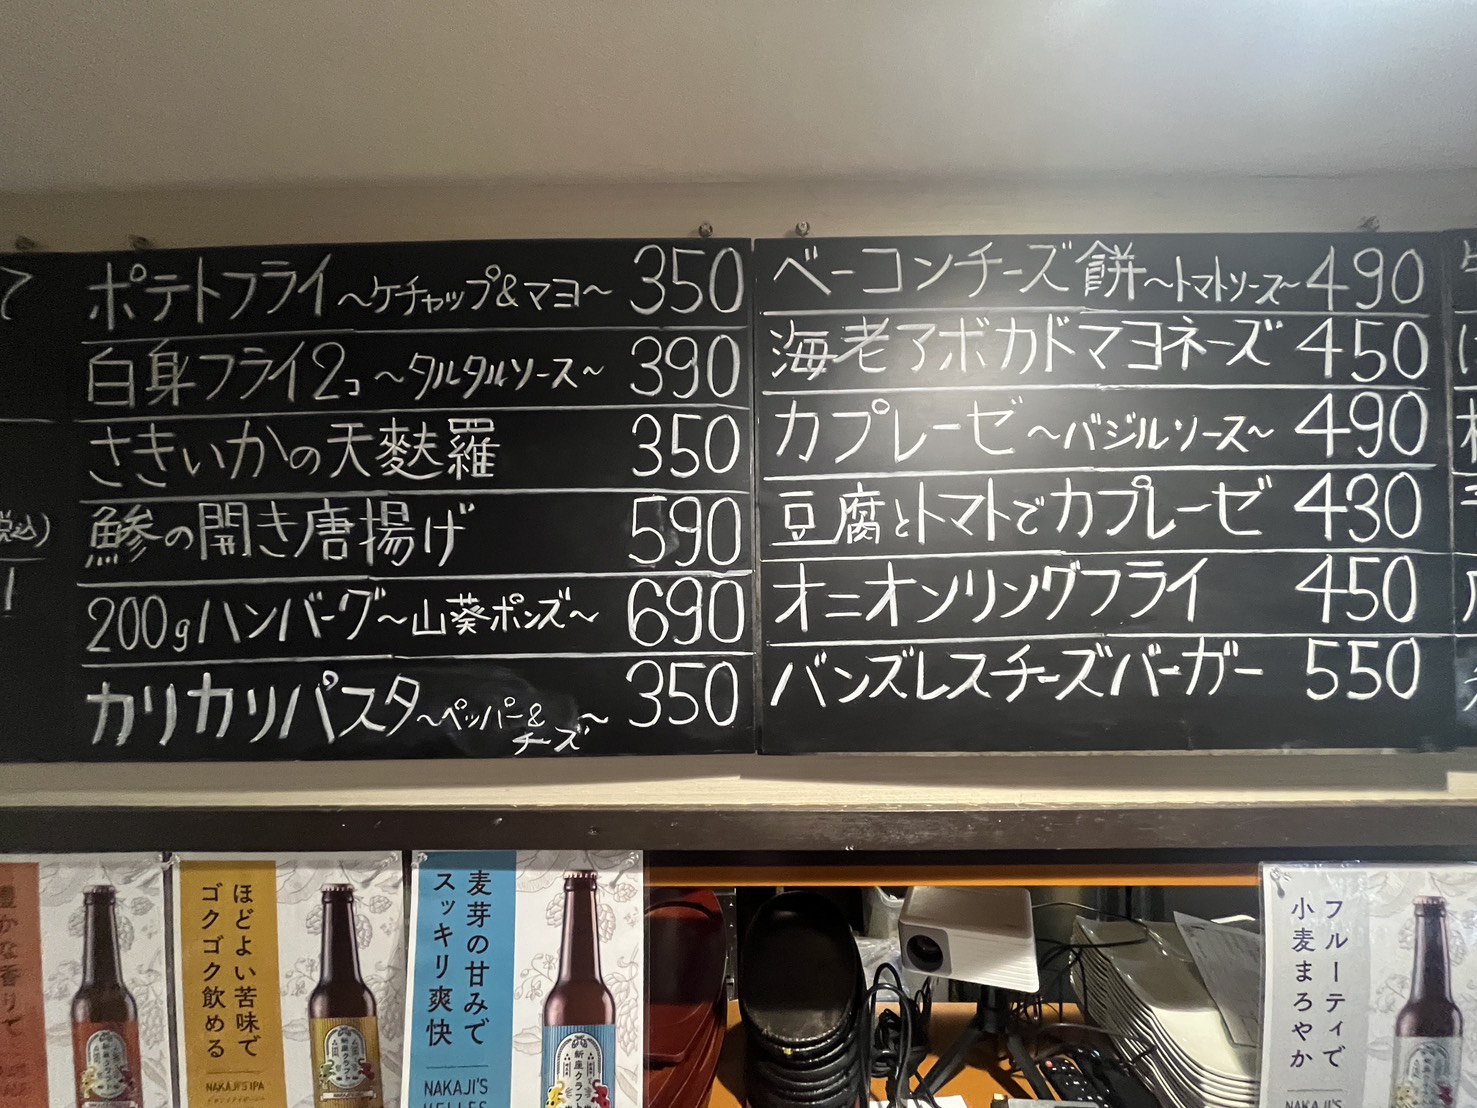 ポテトフライ～ケチャップ&マヨ～ 350
白身フライ2コ～タルタルソース～ 390
さきいかの天麩羅 350
鯵の開き唐揚げ 590
200gハンバーグ～山葵ポンズ～ 690
カリカリパスタ～ペッパー&チーズ～ 350
ベーコンチーズ餅～トマトソース～ 490
海老アボカドマヨネーズ 450
カプレーゼ～バジルソース～ 490
豆腐とトマトでカプレーゼ 430
オニオンリングフライ 450
バンズレスチーズバーガー 550
て
税込)
豊かな香りで
ほどよい苦味で
ゴクゴク飲める
NAKAJI'S IPA
麦芽の甘みで
スッキリ爽快
NAKAJI'S
HELLES
新座クラフト
フルーティで
小麦まろやか
NAKAJI'S